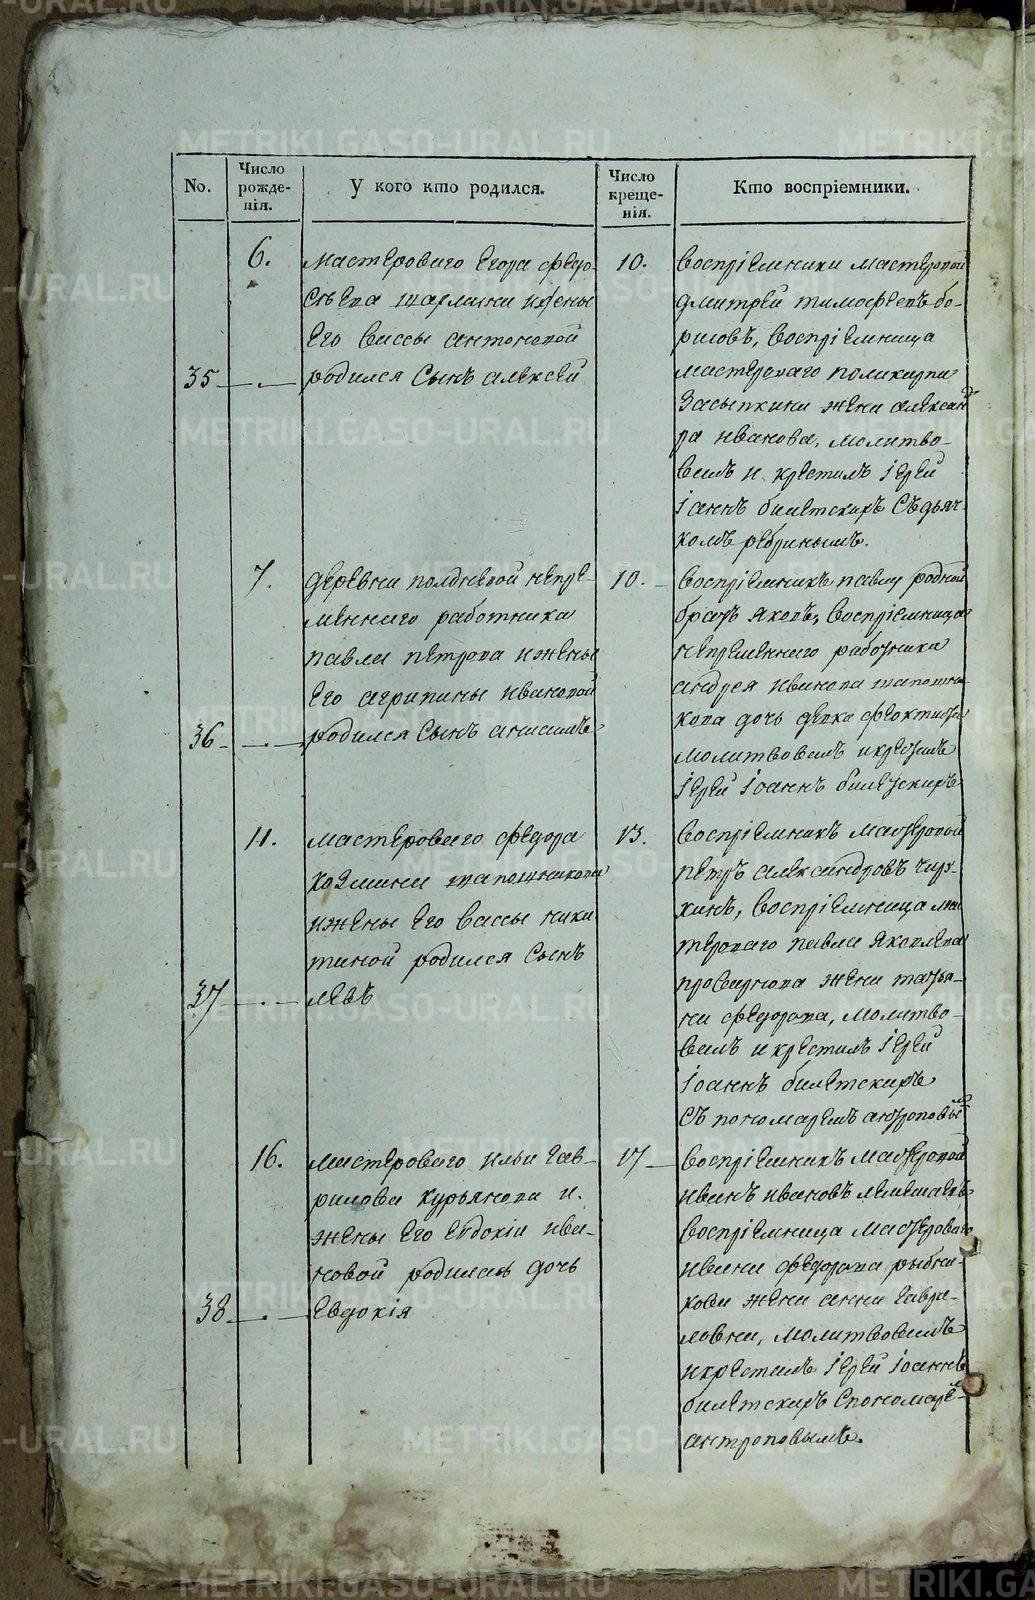 No.
Число рожде-нія.
У кого кто родился.
Число креще-нія.
Кто воспріемники.
35
6.
мастероваго Егора Федо-
сѣева шарлина и жены
Его вассы антоновой
родился Сынъ алексей
10.
воспріемники мастеровой
дмитрей тимофеевъ бо-
рисовъ, воспріемница
мастероваго поликарпа
Засыпкина жена алексан
ра иванова, молитво-
валъ и крестилъ іерей
іоаннъ билетскиръ Съ дьяч-
комъ ребринымъ.
36
7.
деревни полдневой непре-
меннаго работника
павла петрова и жены
Его агрипины ивановой
родился Сынъ анисимъ
10.
воспріемникъ павлу родной
братъ яковъ, воспріемница
непременнаго работника
андрея иванова шапошни-
кова дочь девка феоктиста
молитвовалъ и крестилъ
іерей іоаннъ билетскиръ
37
11.
мастероваго Федора
козмина шапошникова
и жены Его вассы ники
тиной родился Сынъ
левъ
13.
воспріемникъ мастеровой
петръ александровъ
хинъ, воспріемница ма
тероваго павла яковлева
жена татья-
на федорова, молитво-
валъ и крестилъ іерей
іоаннъ билетскиръ
Съ пономаремъ антроповы
38
16.
мастероваго ильи гав-
рилова курьянова и
жены Его евдокіи ива-
новой родилась дочь
Евдокія
17
воспріемникъ мастеровой
иванъ ивановъ
воспріемница мастероваго
ивана федорова рыбни-
кова жена анна гаври-
ловна, молитвовалъ
и крестилъ іерей іоаннъ
билетскиръ Спономаре
антроповымъ.
METRIKI.GASO-URAL.RU